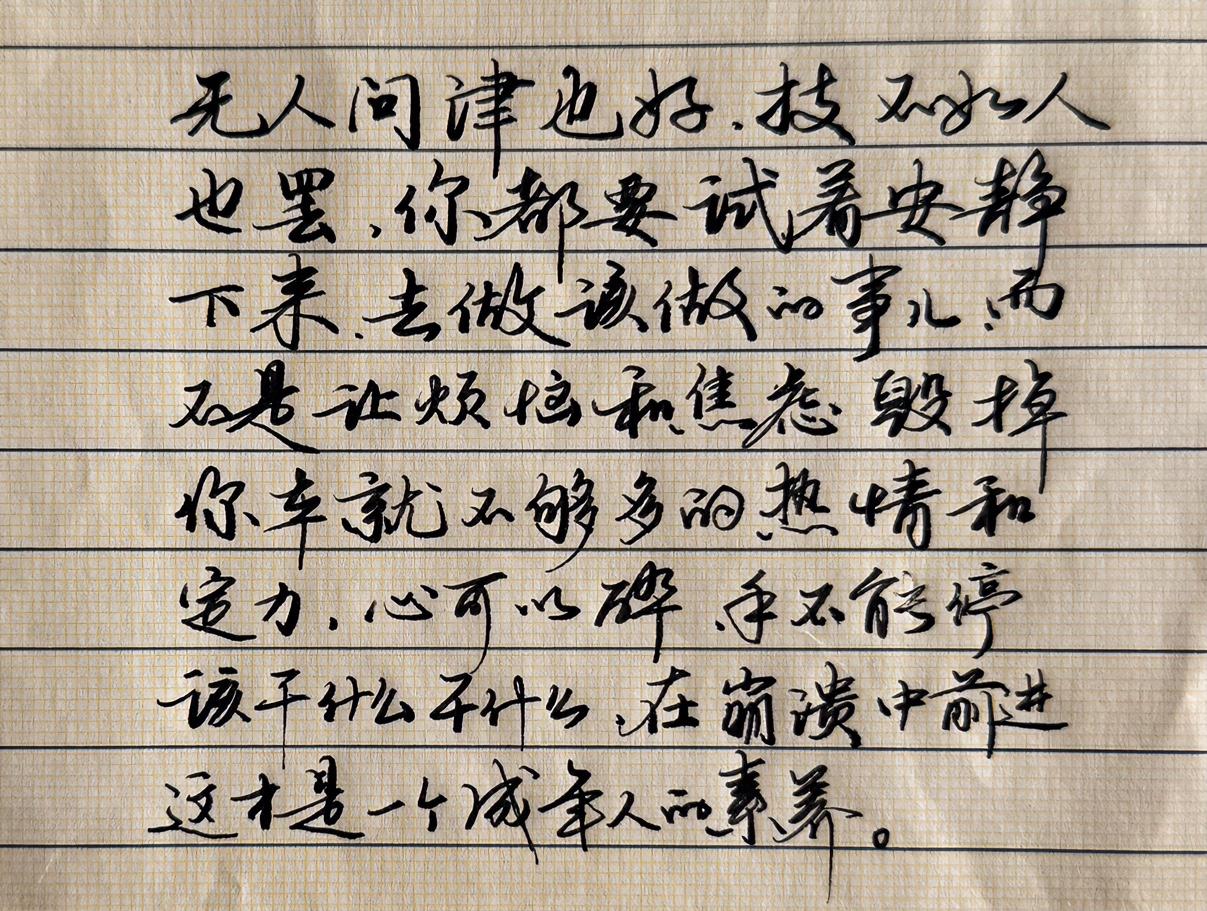 无人问津也好，技不如人
也罢，你都要试着安静
下来，去做该做的事儿，而
不是让烦恼和焦虑毁掉
你本就不够多的热情和
定力，心可以碎，手不能停
该干什么干什么，在崩溃中前进
这才是一个成年人的素养。